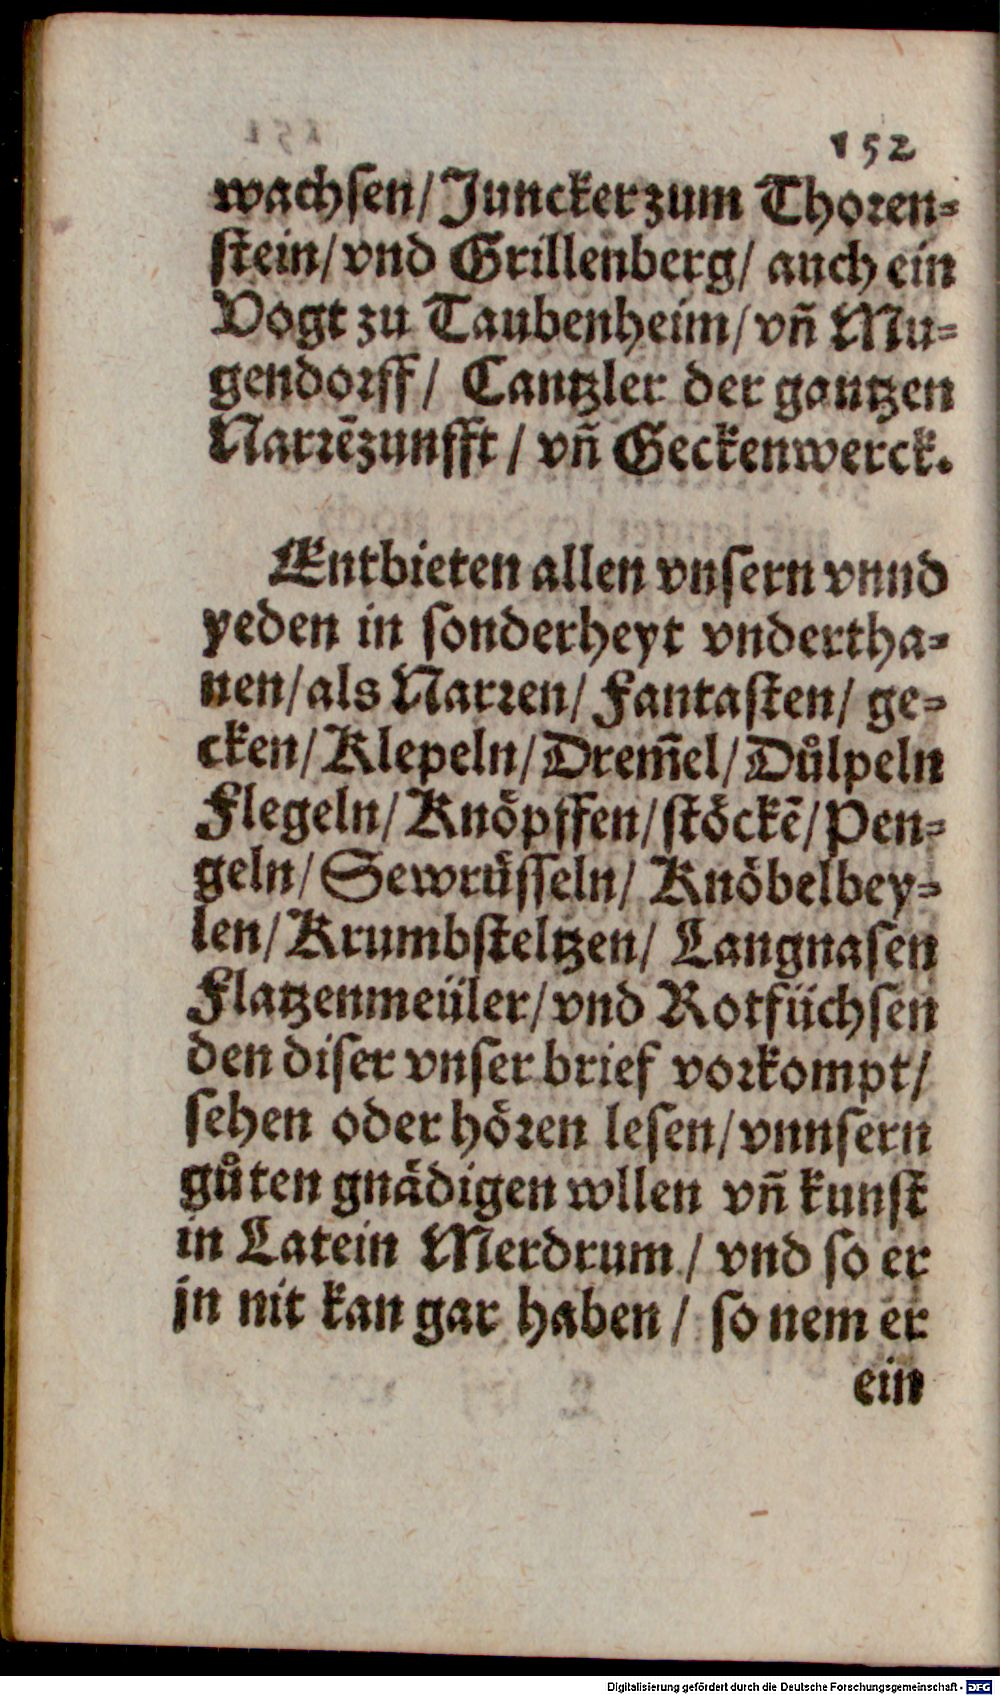 152
wachsen/ Juncker zum Thoren⸗
stein/ vnd Grillenberg/ auch ein
Vogt zu Taubenheim/ vñ Mu⸗
gendorff/ Cantzler der gantzen
Narrẽzunfft/ vñ Geckenwerck.
Entbieten allen vnsern vnnd
yeden in sonderheyt vndertha⸗
nen/ als Narren/ Fantasten/ ge⸗
cken/ Klepeln/ Drem̃el/ Důlpeln
Flegeln/ Knoͤpffen/ stoͤckẽ/ Pen⸗
geln/ Sewruͤsseln/ Knoͤbelbey⸗
len/ Krumbsteltzen/ Langnasen
Flatzenmeüler/ vnd Rotfüchsen
den diser vnser brief vorkompt/
sehen oder hoͤren lesen/ vnnsern
gůten gnaͤdigen wllen vñ kunst
in Latein Merdrum/ vnd so er
jn nit kan gar haben/ so nem er
ein
Digitalisierung gefördert durch die Deutsche Forschungsgemeinschaft - DFG